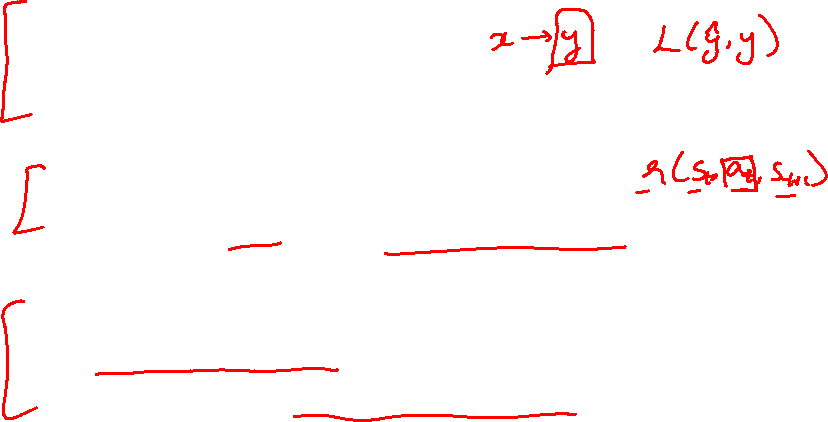 x → y L(ŷ, y)
r(s_t, a_t, s_{t+1})